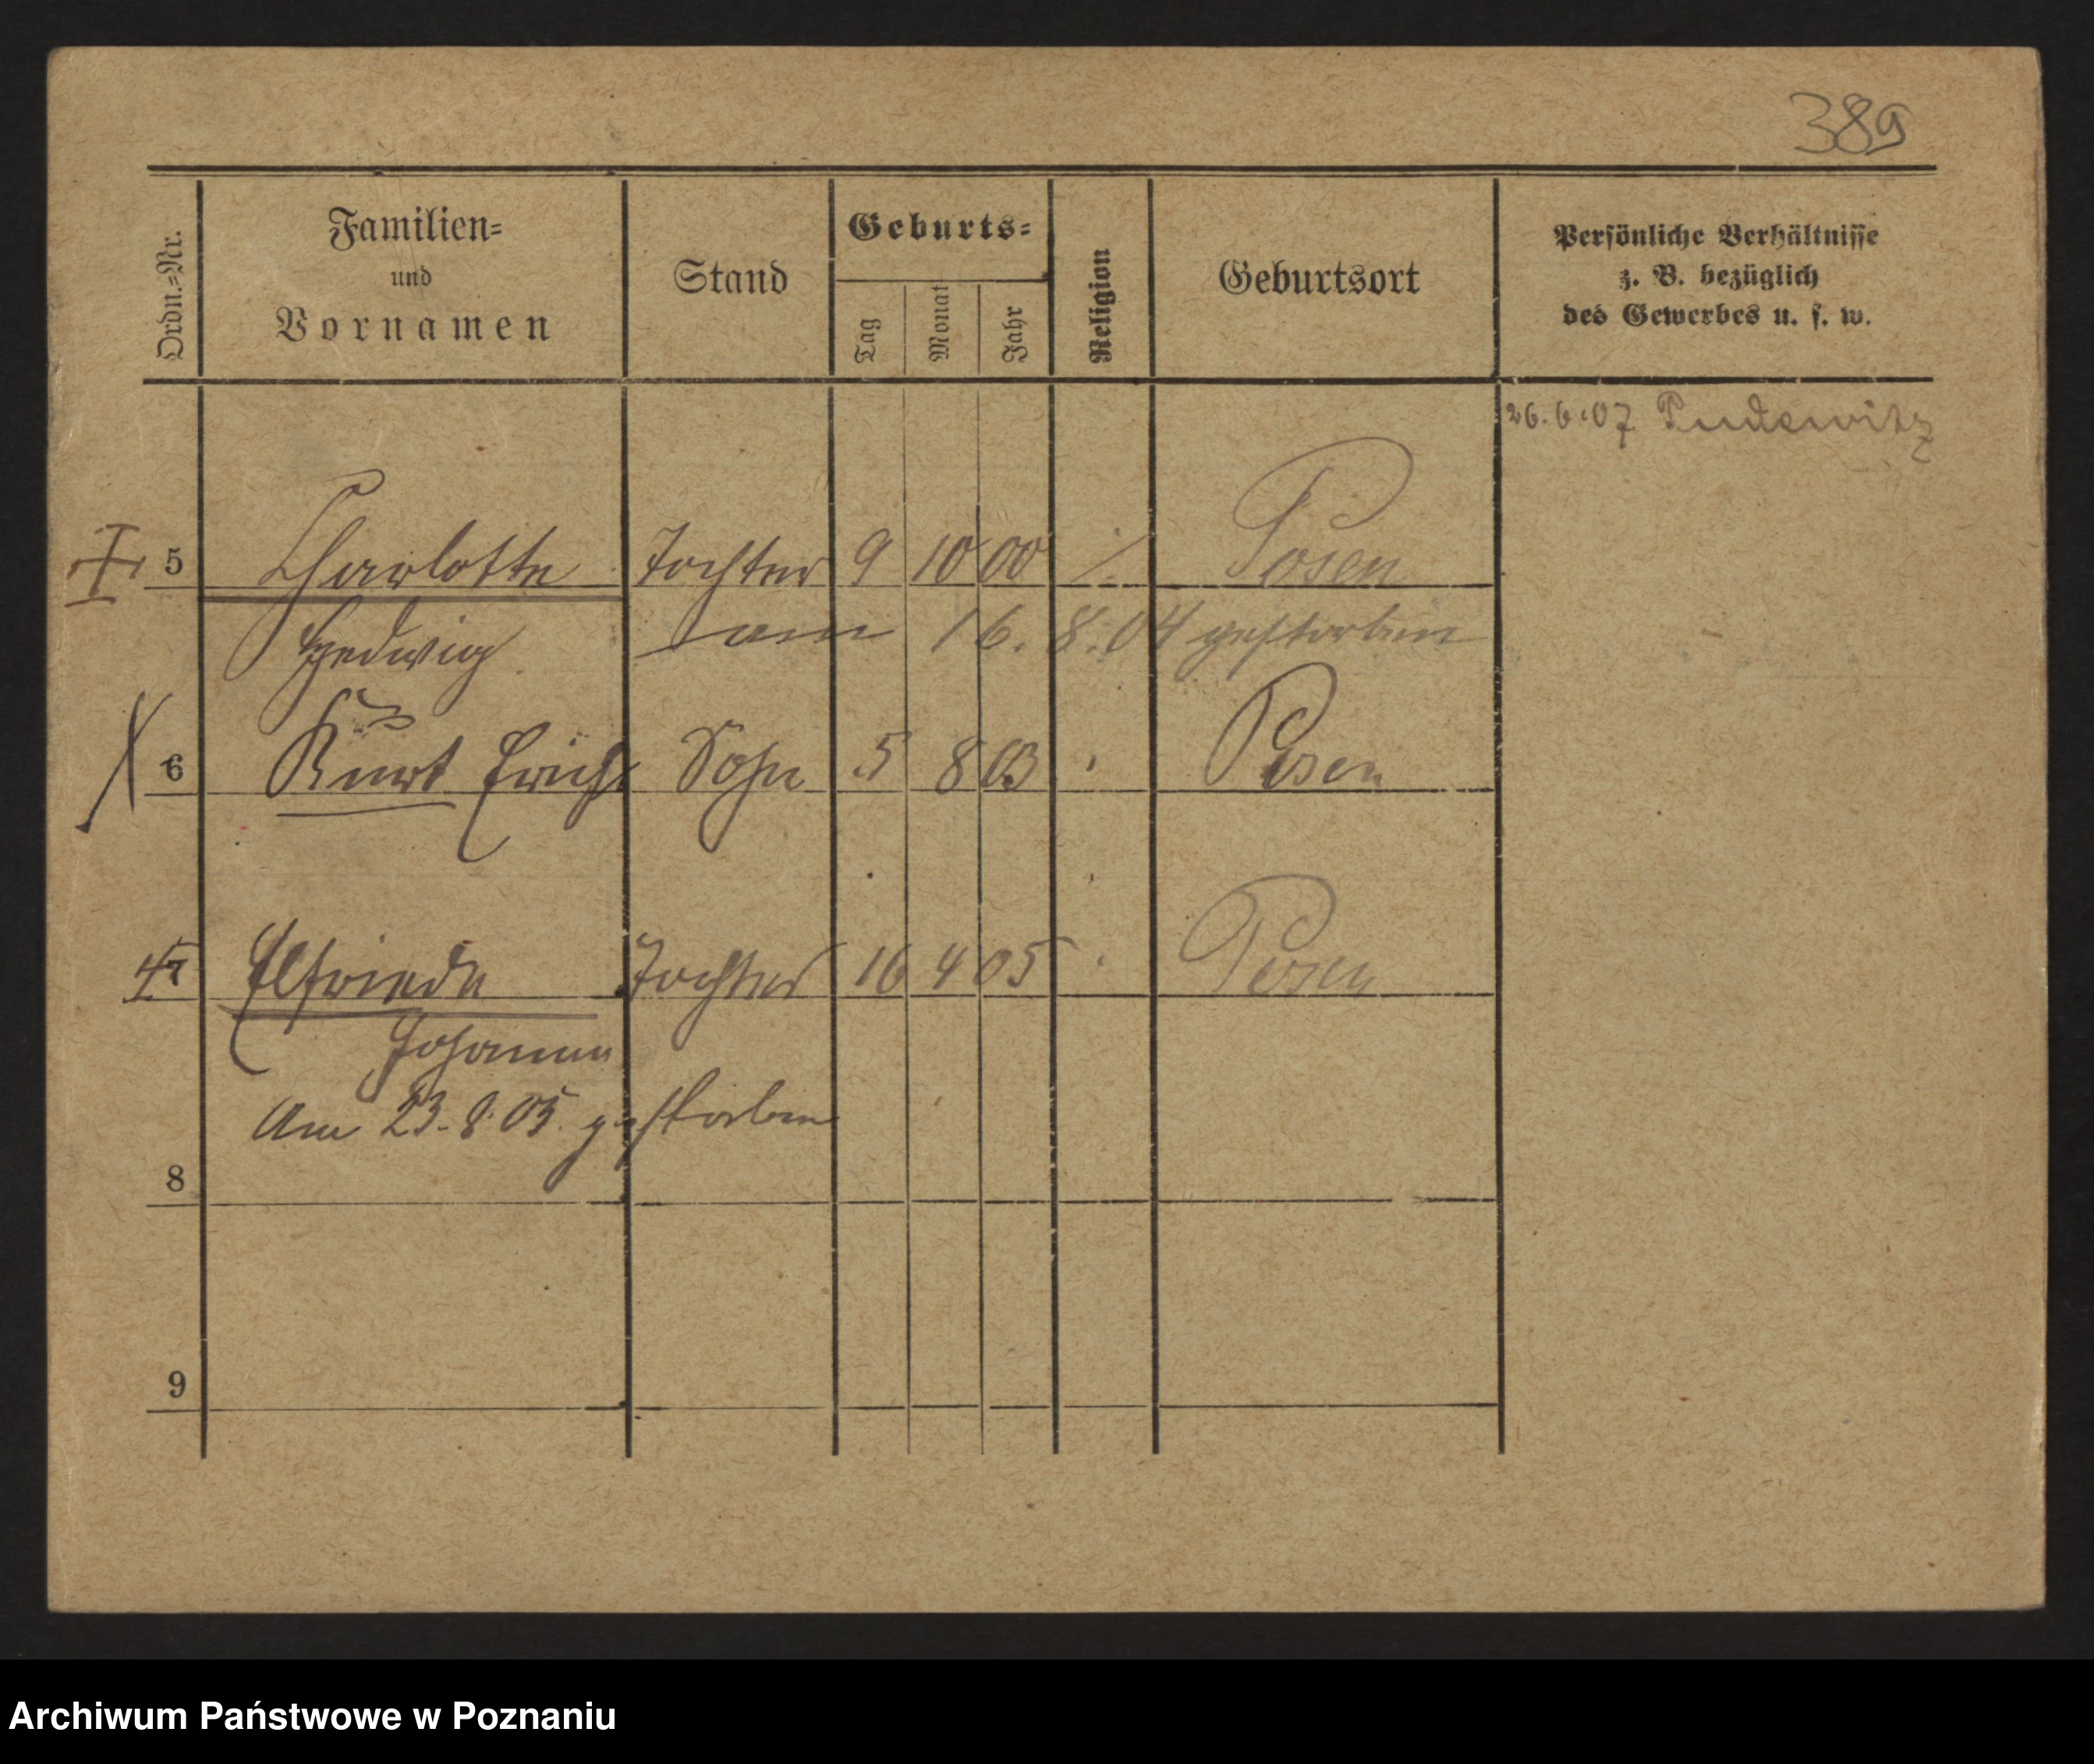 389
Ordn.=Nr.
Familien=
und
Vornamen
Stand
Geburts=
Tag
Monat
Jahr
Religion
Geburtsort
Persönliche Verhältnisse
z. B. bezüglich
des Gewerbes u. s. w.
26.6.07 Pudewitz
5 Charlotte Tochter 9 10 00 Posen
Hedwig am 16.8.04 gestorben
6 Kurt Erich Sohn 5 8 03 Posen
7 Elfriede Tochter 16 4 05 Posen
Johanna
Am 23.8.05. gestorben
8
9
Archiwum Państwowe w Poznaniu